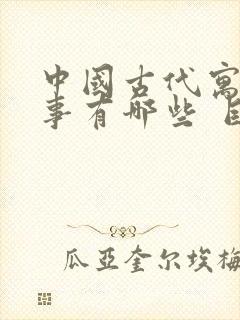 中國古代寓
事有哪些
瓜亞奎尔埃梅